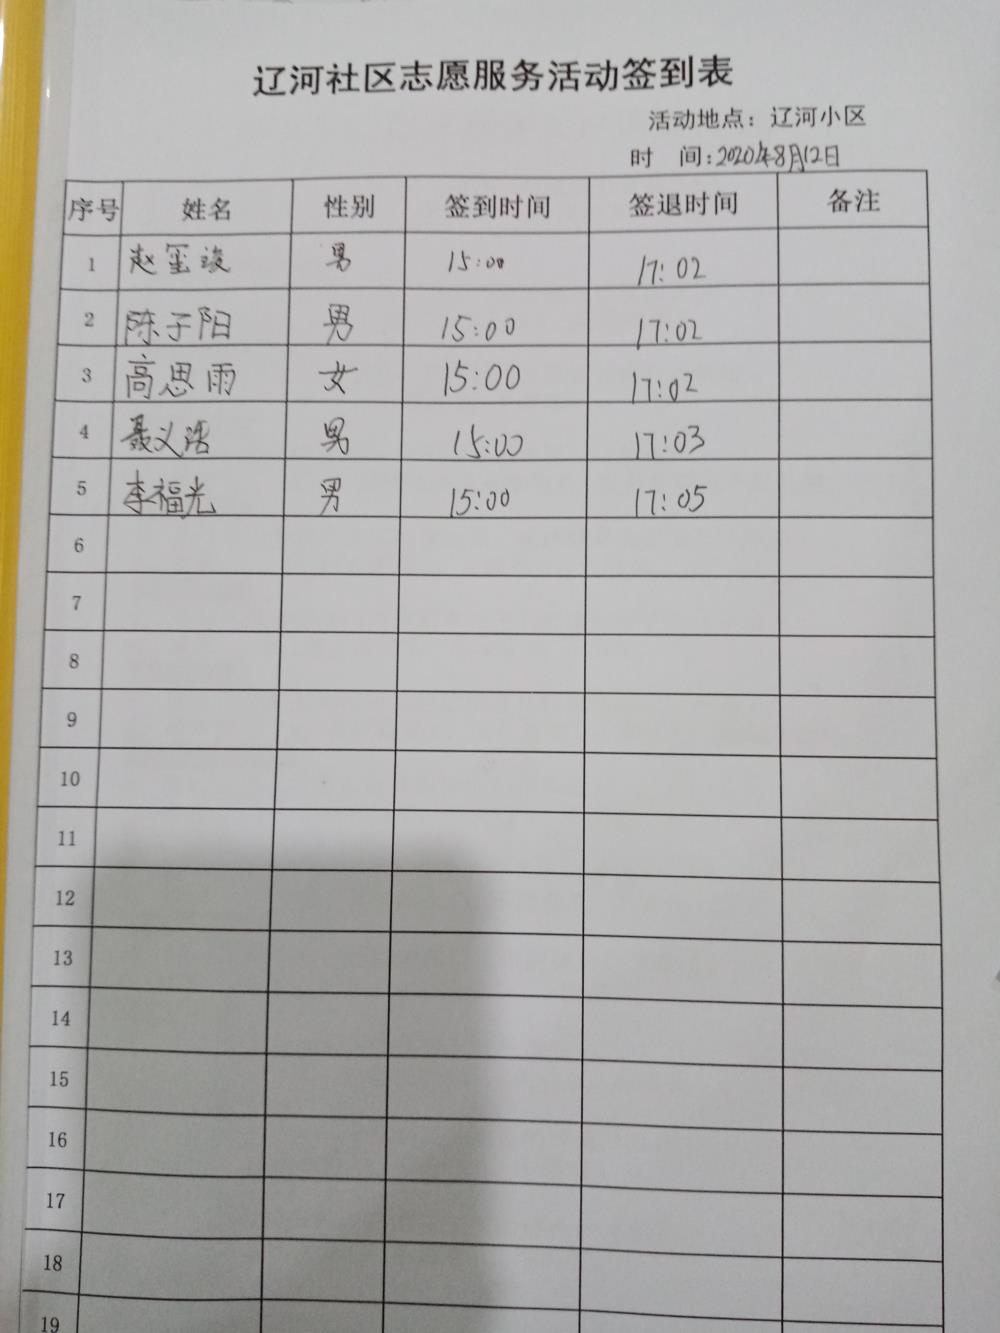 辽河社区志愿服务活动签到表
活动地点：辽河小区
时 间：2020年8月12日
序号 姓名 性别 签到时间 签退时间 备注
1 赵玺竣 男 15:00 17:02
2 陈子阳 男 15:00 17:02
3 高思雨 女 15:00 17:02
4 聂义浩 男 15:00 17:03
5 李福光 男 15:00 17:05
6
7
8
9
10
11
12
13
14
15
16
17
18
19